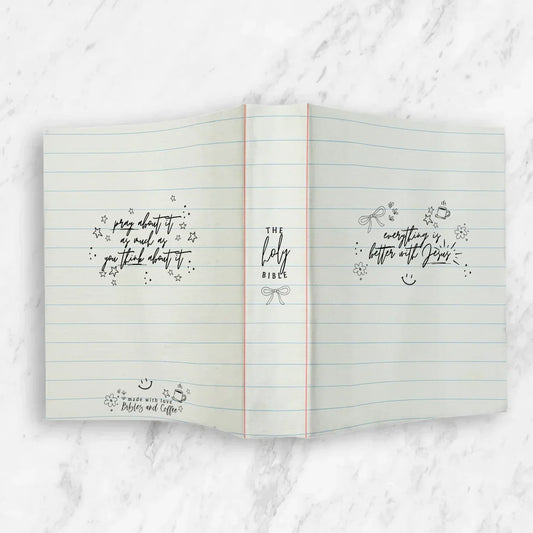 pray about it
as much as
you think about it
made with love
Bibles and Coffee
THE
holy
BIBLE
everything is
better with Jesus